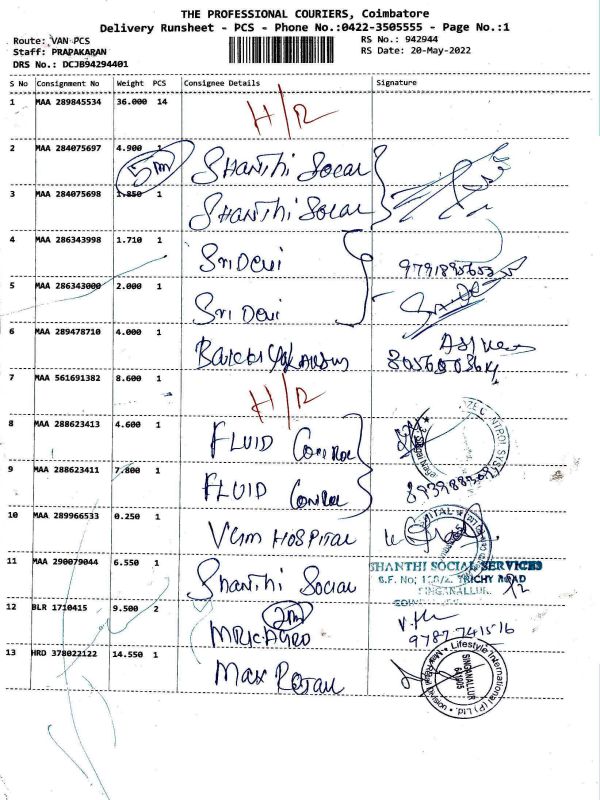 THE PROFESSIONAL COURIERS, Coimbatore
Delivery Runsheet - PCS - Phone No.:0422-3505555 - Page No.:1
Route: VAN PCS RS No.: 942944
Staff: PRAPAKARAN RS Date: 20-May-2022
DRS No.: DCJB94294401
S No Consignment No Weight PCS Consignee Details Signature
1 MAA 289845534 36.000 14 H/R
2 MAA 284075697 4.900 1 Shanthi Social
5m
3 MAA 284075698 1.850 1 Shanthi Social
4 MAA 286343998 1.710 1 Sri Devi
5 MAA 286343000 2.000 1 Sri Devi
6 MAA 289478710 4.000 1
7 MAA 561691382 8.600 1 H/R
8 MAA 288623413 4.600 1 FLUID Control
9 MAA 288623411 7.800 1 FLUID Control
10 MAA 289966533 0.250 1 VGM HOSPITAL
11 MAA 290079044 6.550 1 Shanthi Social
SHANTHI SOCIAL SERVICES
TRICHY ROAD
SINGANALLUR
12 BLR 1710415 9.500 2 AGRO
2m
9787741516
13 HRD 378022122 14.550 1 Max Retail
Lifestyle International (P) Ltd.
SINGANALLUR
641005